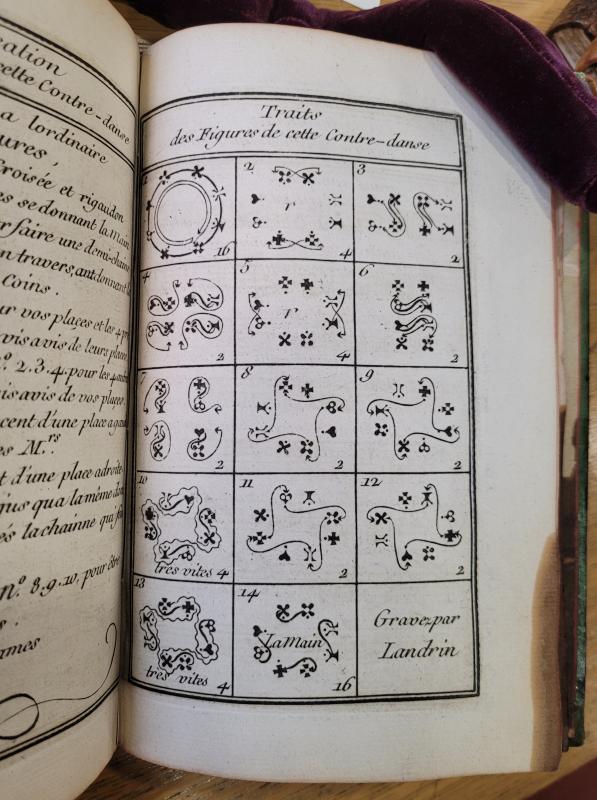 cation
cette Contre-danse
a lordinaire
ures,
Croisée et rigaudon
es se donnant la main
r faire une demi-chaine
n travers, ant donnent
Coins.
ur vos places et les 4 pr
vis avis de leurs places
n.º 2.3.4. pour les 4 autre
is avis de vos places.
cent d'une place a gau
es M.rs
t d'une place adroite
jus qua la même da
és la chainne qui
n.º 8.9.10, pour être
s.
ames
Traits
des Figures de cette Contre-danse
1
16
2
r
4
3
2
4
2
5
r
4
6
2
7
2
8
2
9
2
10
tres vites 4
11
2
12
2
13
tres vites
4
14
La Main
16
Gravez par
Landrin